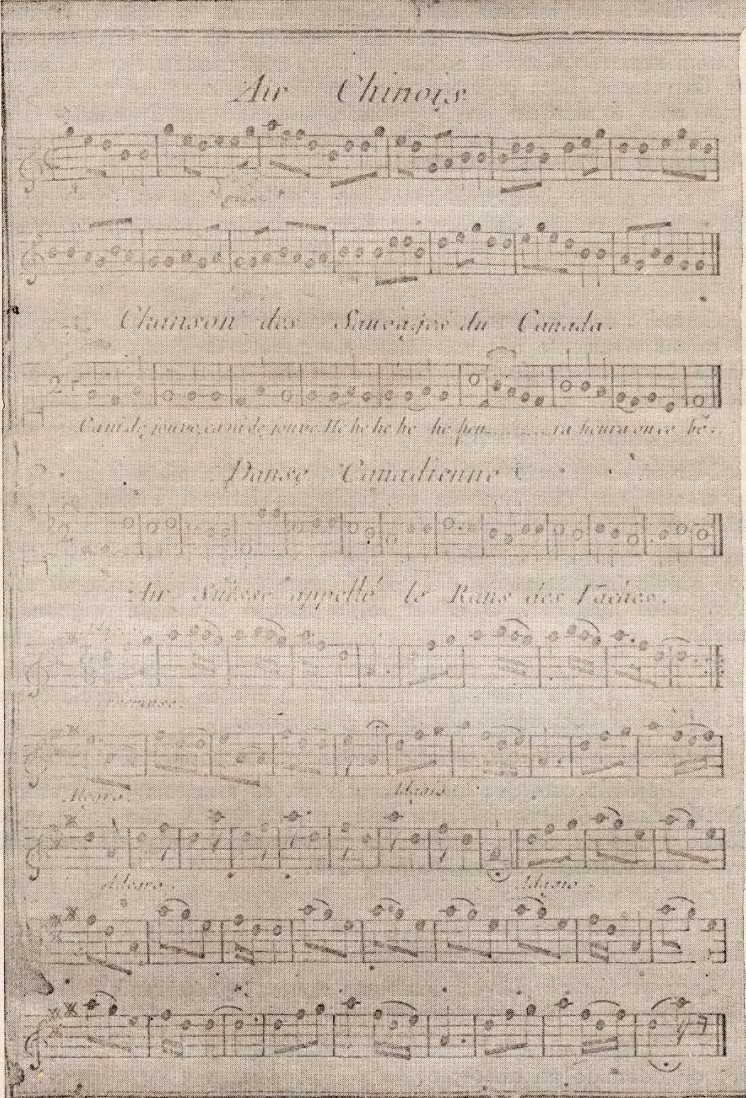 Air Chinois
Chanson des Sauvages du Canada.
2
Canidé jouve, canidé jouve He he he he he heu ra heura ouce bé.
Danse Canadienne
2
Air Suisse appellé le Rans des Vaches.
Adagio.
Allegro. Adagio.
Allegro. Adagio.